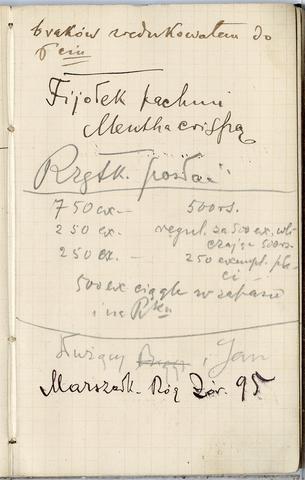 braków zredukowałem do
6ciu
Fijołek pachni
Mentha crispą
Rzętk. posłać
750 ex. — 500 rs.
250 ex. regul. za 500 ex. wli
czając 500 rs.
250 ex. — 250 exempl. pła-
ci —
500 ex ciągle w zapasie
i na Rku
Służący i Jan
Marszałk. Róg Zór. 95